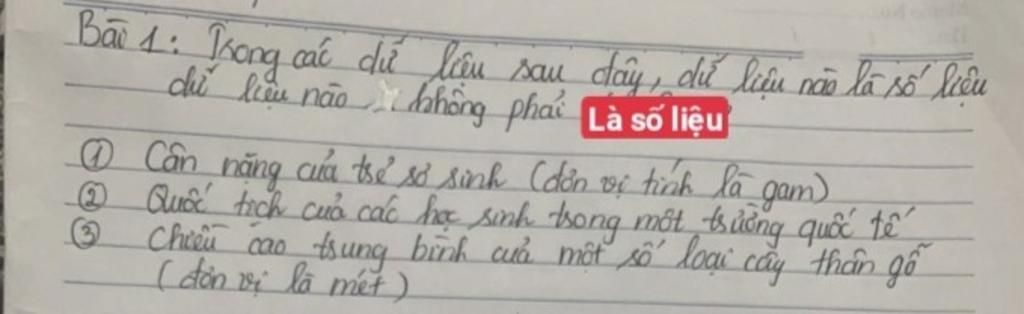 Bài 1: Trong các dữ liệu sau đây, dữ liệu nào là số liệu
dữ liệu nào không phải Là số liệu
① Cân nặng của trẻ sơ sinh (đơn vị tính là gam)
② Quốc tịch của các học sinh trong một trường quốc tế
③ Chiều cao trung bình của một số loại cây thân gỗ
(đơn vị là mét)